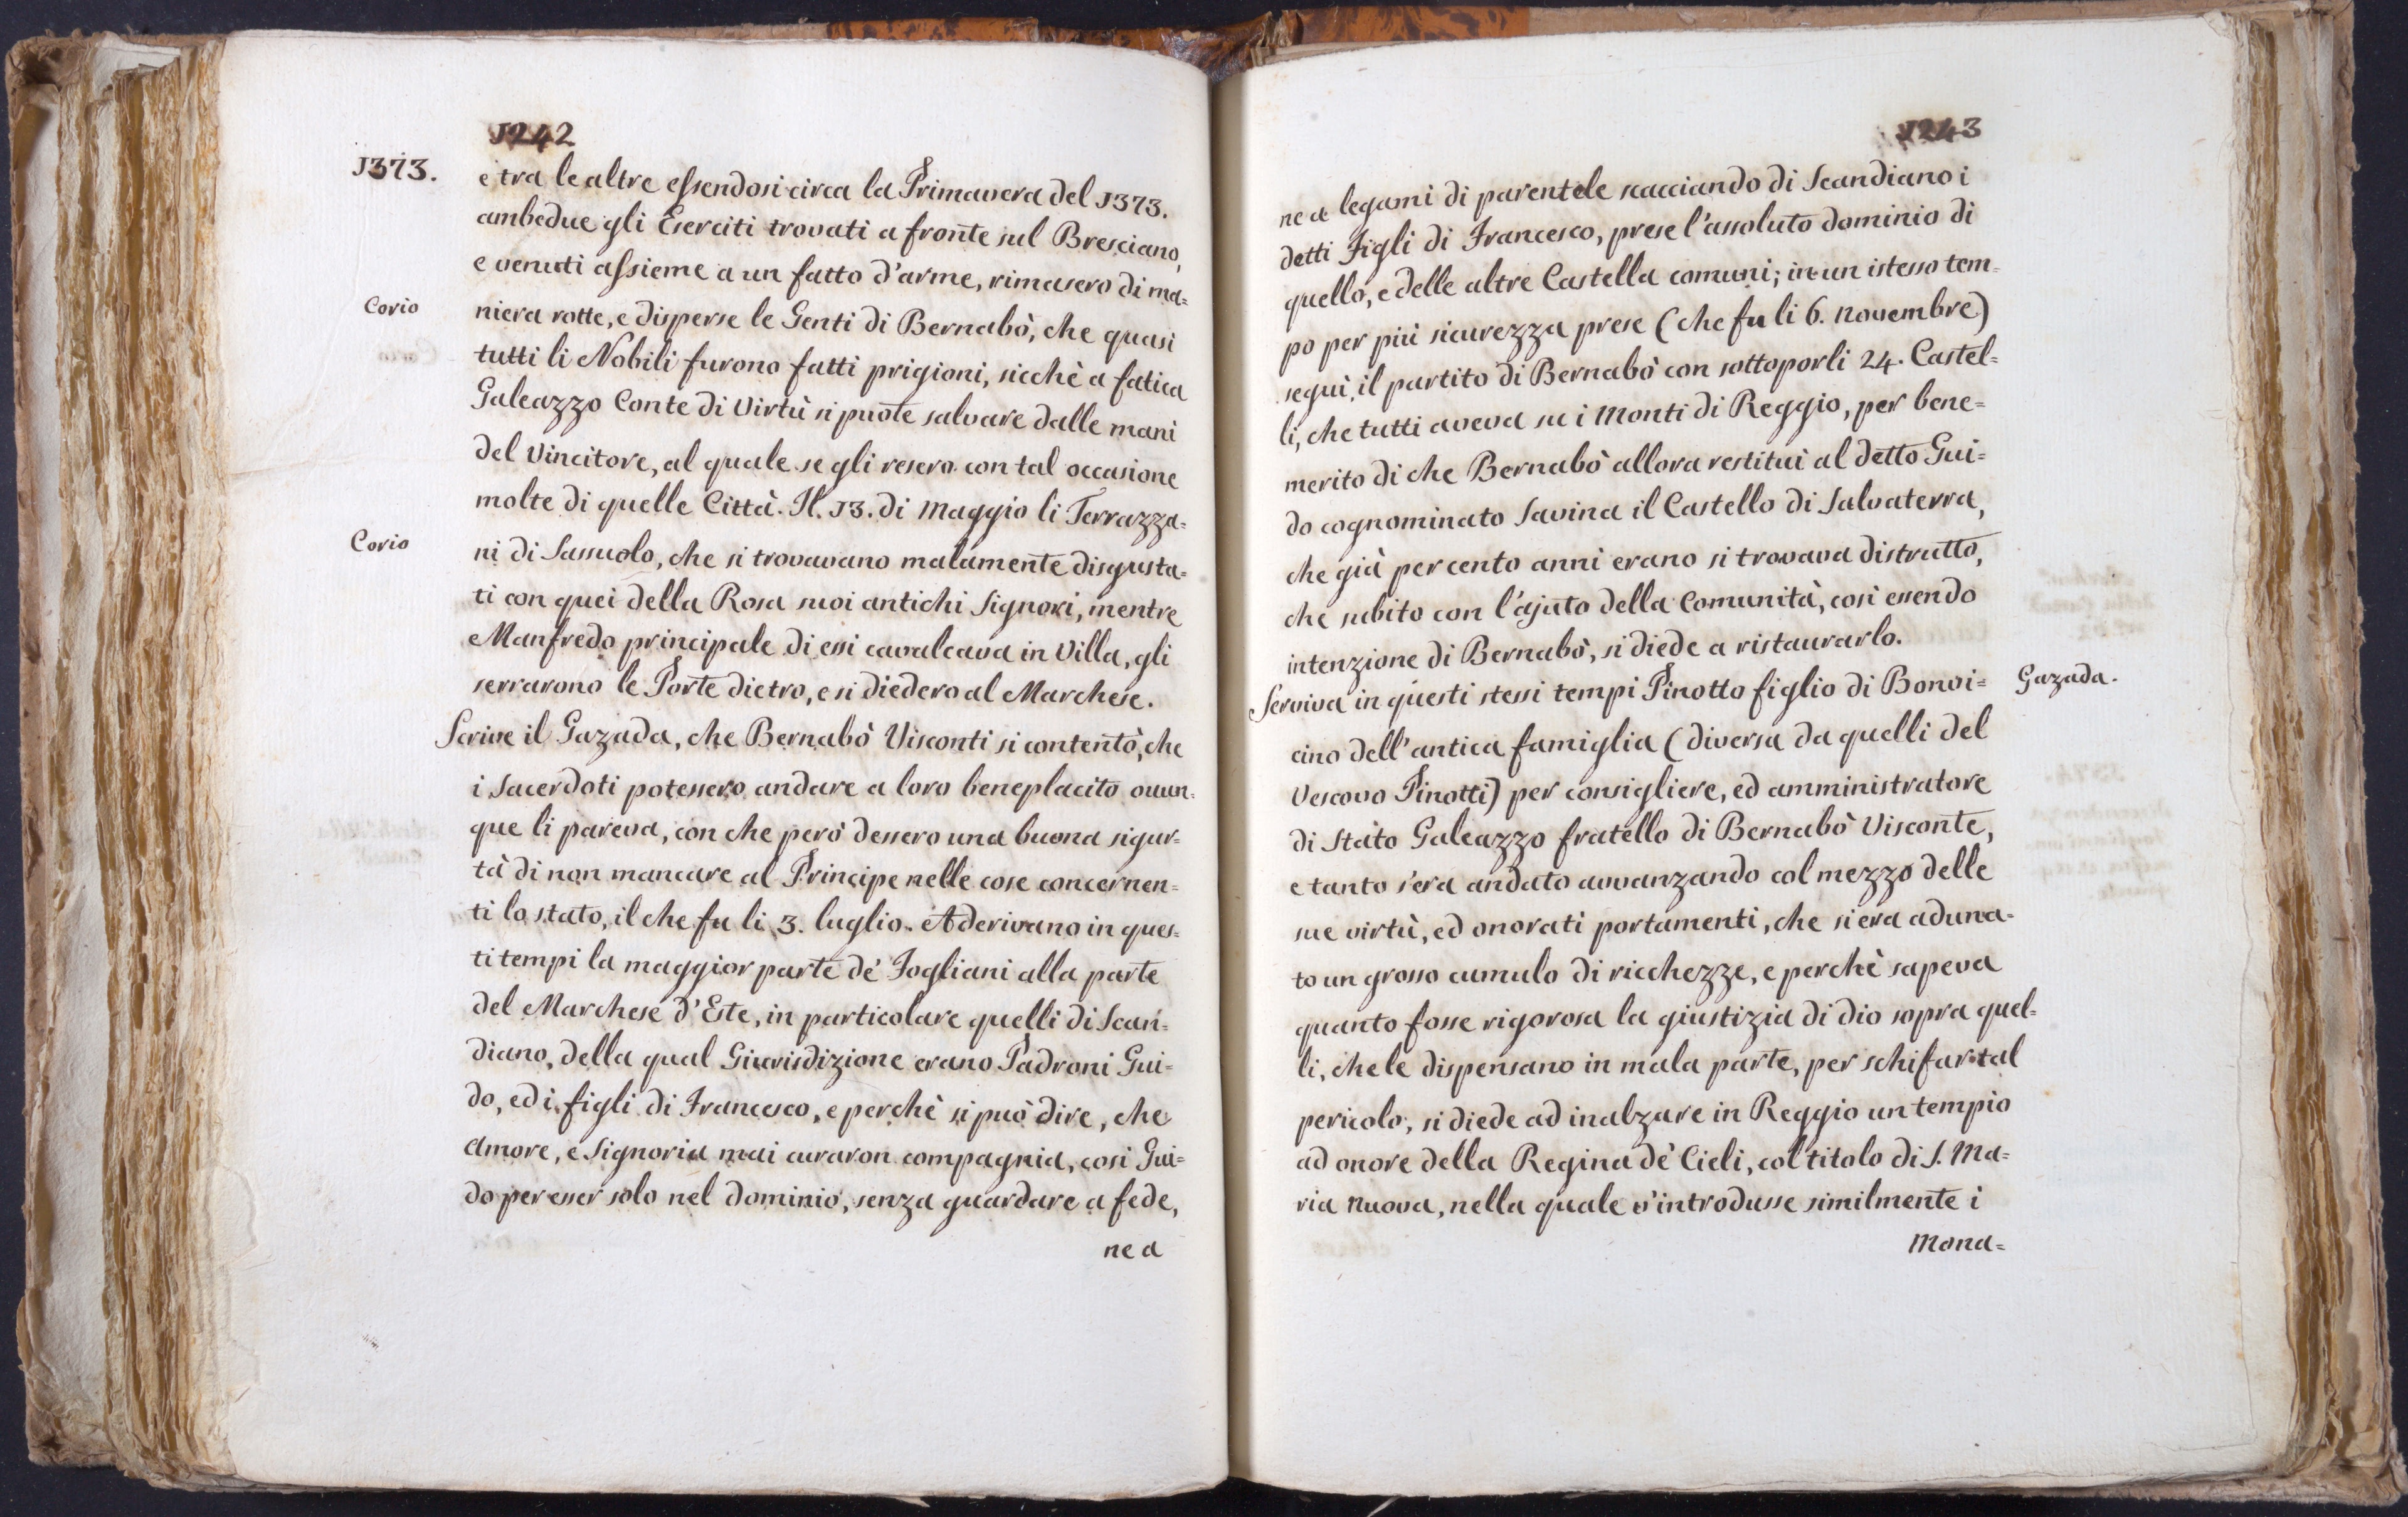 1242
1373.
e tra le altre essendosi circa la Primavera del 1373.
ambedue gli Eserciti trovati a fronte sul Bresciano,
e venuti assieme a un fatto d'arme, rimasero di ma=
Corio
niera rotte, e disperse le Genti di Bernabò, che quasi
tutti li Nobili furono fatti prigioni, sicchè a fatica
Galeazzo Conte di Virtù si puote salvare dalle mani
del Vincitore, al quale se gli resero con tal occasione
molte di quelle Città. Il. 13. di Maggio li Terrazza=
Corio
ni di Sassuolo, che si trovavano malamente disgusta=
ti con quei della Rosa suoi antichi Signori, mentre
Manfredo principale di essi cavalcava in Villa, gli
serrarono le Porte dietro, e si diedero al Marchese.
Scrive il Gazada, che Bernabò Visconti si contentò, che
i Sacerdoti potessero andare a loro beneplacito ovun=
que li pareva, con che però dessero una buona sigur=
tà di non mancare al Principe nelle cose concernen=
ti lo stato, il che fu li 3. luglio. Aderivano in ques=
ti tempi la maggior parte de' Fogliani alla parte
del Marchese d'Este, in particolare quelli di Scan=
diano, della qual Giurisdizione erano Padroni Gui=
do, ed i figli di Francesco, e perchè si può dire, che
Amore, e Signoria mai curaron compagnia, così Gui=
do per esser solo nel dominio, senza guardare a fede,
ne a
1243
ne a legami di parentele scacciando di Scandiano i
detti Figli di Francesco, prese l'assoluto dominio di
quello, e delle altre Castella comuni; in un istesso tem=
po per più sicurezza prese (che fu li 6. Novembre)
seguì il partito di Bernabò con sottoporli 24. Castel=
li, che tutti aveva su i Monti di Reggio, per bene=
merito di che Bernabò allora restituì al detto Gui=
do cognominato Savina il Castello di Salvaterra,
che già per cento anni erano si trovava distrutto,
che subito con l'ajuto della Comunità, così essendo
intenzione di Bernabò, si diede a ristaurarlo.
Serviva in questi stessi tempi Pinotto figlio di Bonvi=
Gazada.
cino dell'antica famiglia (diversa da quelli del
Vescovo Pinotti) per consigliere, ed amministratore
di Stato Galeazzo fratello di Bernabò Visconte,
e tanto s'era andato avvanzando col mezzo delle
sue virtù, ed onorati portamenti, che si era aduna=
to un grosso cumulo di ricchezze, e perchè sapeva
quanto fosse rigorosa la giustizia di dio sopra quel=
li, che le dispensano in mala parte, per schifar tal
pericolo, si diede ad inalzare in Reggio un tempio
ad onore della Regina de' Cieli, col titolo di S. Ma=
ria Nuova, nella quale v'introdusse similmente i
Mona=